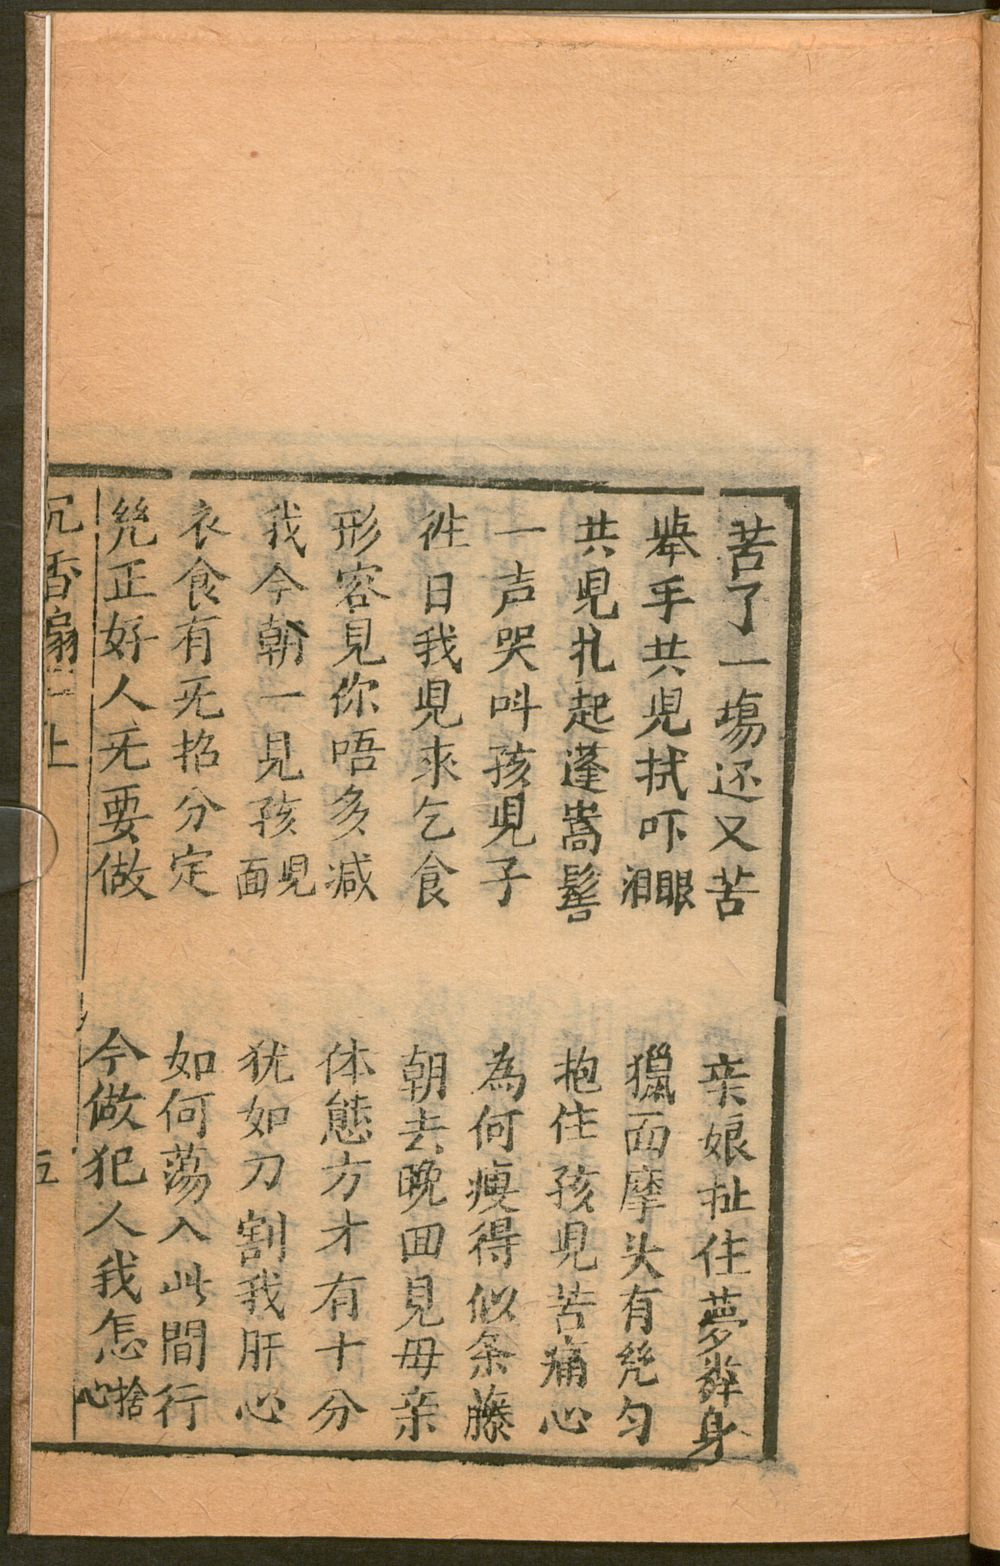 苦了一塲还又苦　亲娘扯住夢粦身
舉手共児拭吓眼泪　獵面摩头有㡬勻
共児扎起蓬嵩髻　抱住孩児苦痛心
一声哭呌孩児子　為何瘐得似条藤
徃日我児來乞食　朝去晚囬見毋亲
形容見你唔多减　体態方才有十分
我今朝一見孩児面　犹如刀割我肝心
衣食有旡招分定　如何蕩入此間行
㡬正好人旡要做　今做犯人我怎捨心
沉香扇　上　五